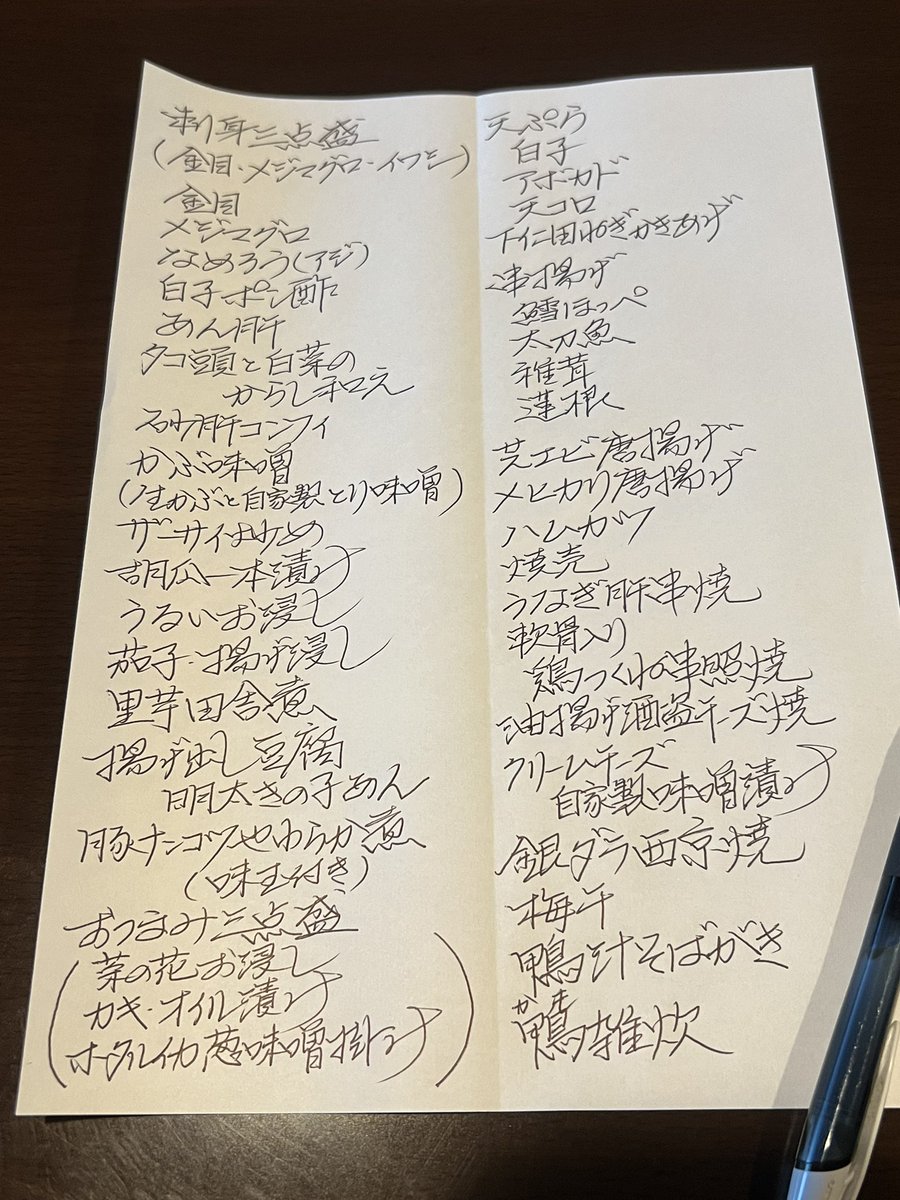 刺身三点盛
(金目・メジマグロ・イワシ)
金目
メジマグロ
なめろう(アジ)
白子ポン酢
あん肝
タコ頭と白菜の
からし和え
砂肝コンフィ
かぶ味噌
(生かぶと自家製とり味噌)
ザーサイ炒め
胡瓜一本漬け
うるいお浸し
茄子・揚げ浸し
里芋田舎煮
揚げ出し豆腐
明太きの子あん
豚ナンコツやわらか煮
(味玉付き)
おつまみ三点盛
菜の花お浸し
カキ・オイル漬け
ホタルイカ葱味噌掛け
天ぷら
白子
アボカド
天コロ
下仁田ねぎかきあげ
串揚げ
鱈ほっぺ
太刀魚
椎茸
蓮根
芝エビ唐揚げ
メヒカリ唐揚げ
ハムカツ
焼売
うなぎ肝串焼
軟骨入り
鶏つくねの串照焼
油揚げ酒盗チーズ焼
クリームチーズ
自家製味噌漬け
銀ダラ西京焼
梅干
鴨汁そばがき
かも
鴨雑炊